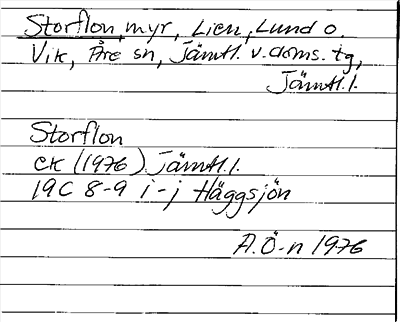 Storflon, myr, Lien, Lund o.
Vik, Åre sn, Jämtl. v. doms. tg,
Jämtl. l.
Storflon
ek (1976) Jämtl. l.
19C 8-9 i-j Häggsjön
A.Ö-n 1976